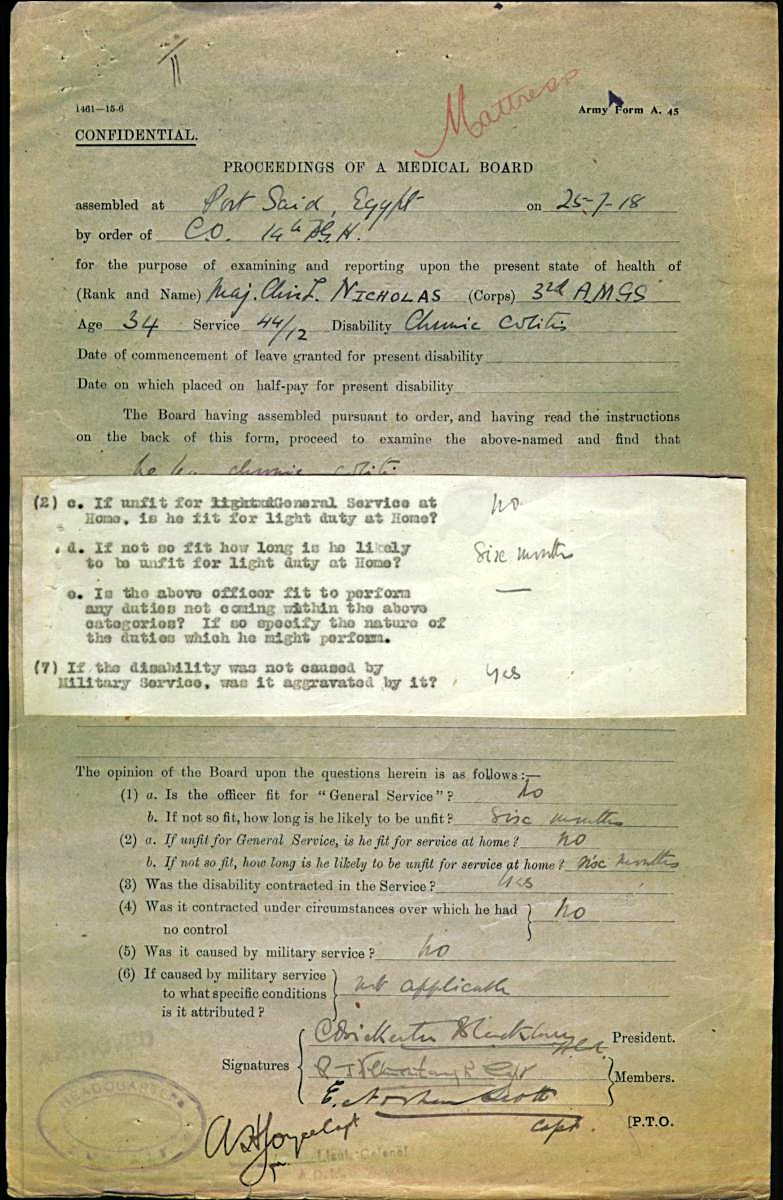 Mattress
1461—15-6
Army Form A. 45
CONFIDENTIAL.
PROCEEDINGS OF A MEDICAL BOARD
assembled at Port Said, Egypt on 25-7-18
by order of C.O. 14th A.G.H.
for the purpose of examining and reporting upon the present state of health of
(Rank and Name) Maj. NICHOLAS (Corps) 3rd
Age 34 Service 44/12 Disability Chronic Colitis
Date of commencement of leave granted for present disability
Date on which placed on half-pay for present disability
The Board having assembled pursuant to order, and having read the instructions
on the back of this form, proceed to examine the above-named and find that
he has chronic colitis
(2) c. If unfit for General Service at
Home, is he fit for light duty at Home? No
d. If not so fit how long is he likely
to be unfit for light duty at Home? Six months
e. Is the above officer fit to perform
any duties not coming within the above
categories? If so specify the nature of
the duties which he might perform. —
(7) If the disability was not caused by
Military Service, was it aggravated by it? Yes
The opinion of the Board upon the questions herein is as follows:—
(1) a. Is the officer fit for "General Service"? No
b. If not so fit, how long is he likely to be unfit? Six months
(2) a. If unfit for General Service, is he fit for service at home? No
b. If not so fit, how long is he likely to be unfit for service at home? Six months
(3) Was the disability contracted in the Service? Yes
(4) Was it contracted under circumstances over which he had
no control } No
(5) Was it caused by military service? No
(6) If caused by military service
to what specific conditions
is it attributed? } not applicable
Signatures
President.
Members.
Capt.
[P.T.O.
Lieut.-Colonel